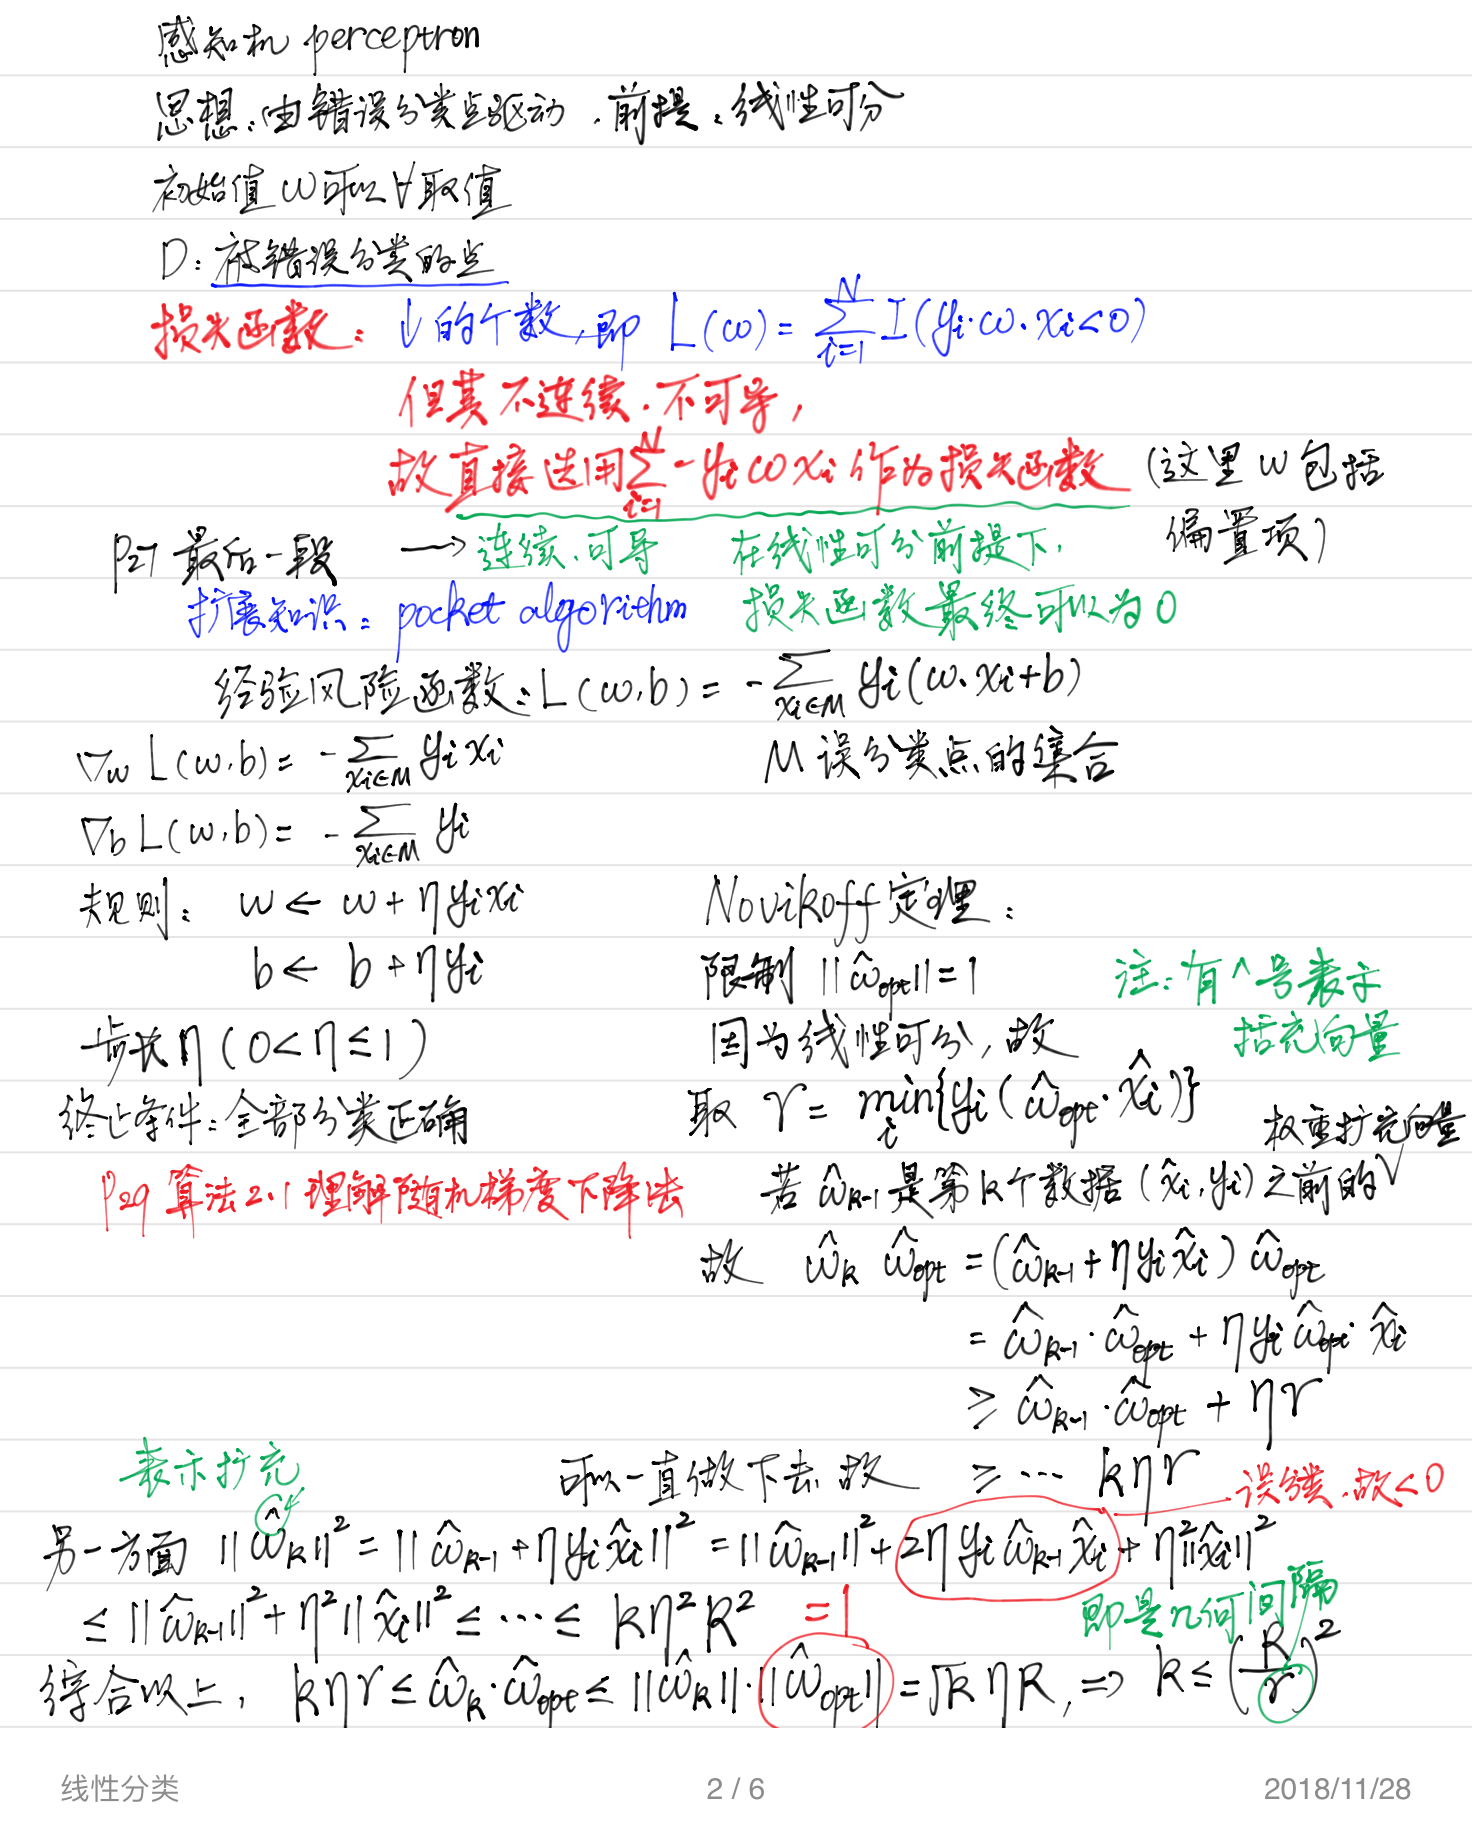 感知机 perceptron
思想:由错误分类点驱动.前提:线性可分
初始值 ω可以∀取值
D:被错误分类的点
损失函数: ↓的个数,即 L(ω)=∑_{i=1}^{N} I(yi·ω·xi<0)
但其不连续.不可导,
故直接选用∑_{i=1}^{N} -yi ω xi 作为损失函数 (这里 w 包括
偏置项)
P27 最后一段 → 连续.可导 在线性可分前提下.
扩展知识: pocket algorithm 损失函数最终可以为0
经验风险函数: L(ω,b)= -∑_{xi∈M} yi(ω·xi+b)
∇w L(w,b)= -∑_{xi∈M} yi xi M 误分类点的集合
∇b L(w,b)= -∑_{xi∈M} yi
规则: w ← w+ηyixi
b ← b+ηyi
步长η(0<η≤1)
终止条件:全部分类正确
P29 算法2.1理解随机梯度下降法
Novikoff 定理:
限制 ||ω̂opt||=1 注:有^号表示
括充向量
因为线性可分,故
取 γ= min_i{yi(ω̂opt·x̂i)}
权重扩充向量
若 ω̂k-1 是第k个数据(x̂i,yi)之前的√
故 ω̂k ω̂opt =(ω̂k-1+ηyix̂i) ω̂opt
= ω̂k-1·ω̂opt + ηyiω̂opt·x̂i
≥ ω̂k-1·ω̂opt + ηγ
表示扩充
可以一直做下去.故 ≥ ... kηγ 误分类.故<0
另一方面 ||ω̂k||²=||ω̂k-1+ηyix̂i||²=||ω̂k-1||²+2ηyiω̂k-1x̂i+η²||x̂i||²
≤||ω̂k-1||²+η²||x̂i||²≤...≤ kη²R² =1 即是几何间隔
综合以上, kηγ≤ω̂k·ω̂opt≤||ω̂k||·||ω̂opt||=√kηR, ⇒ k≤(R/γ)²
线性分类 2 / 6 2018/11/28